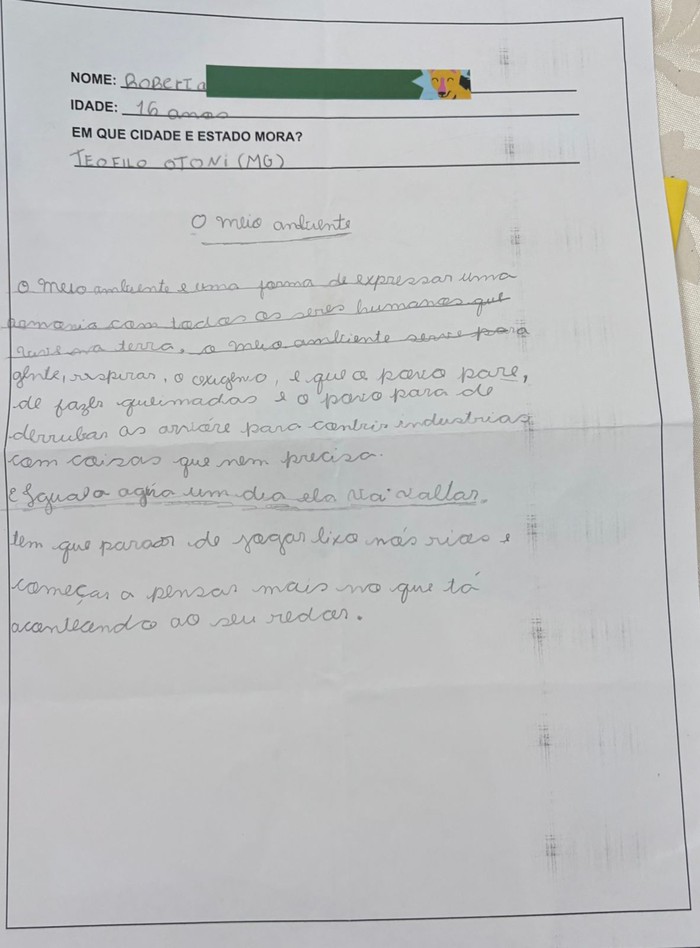 NOME: ROBERTA
IDADE: 16 anos
EM QUE CIDADE E ESTADO MORA?
TEOFILO OTONI (MG)
O meio ambiente
O meio ambiente e uma forma de expressar uma
com todos os seres humanos que
terra, o meio ambiente serve para
gente, respirar, o oxigênio, e que o povo pare,
de fazer queimadas e o povo para de
derrubar as para industrias
com coisas que nem precisa.
agúa um dia ela vai
tem que parar de jogar lixo nós rios e
começar a pensar mais no que tá
ao seu redor.